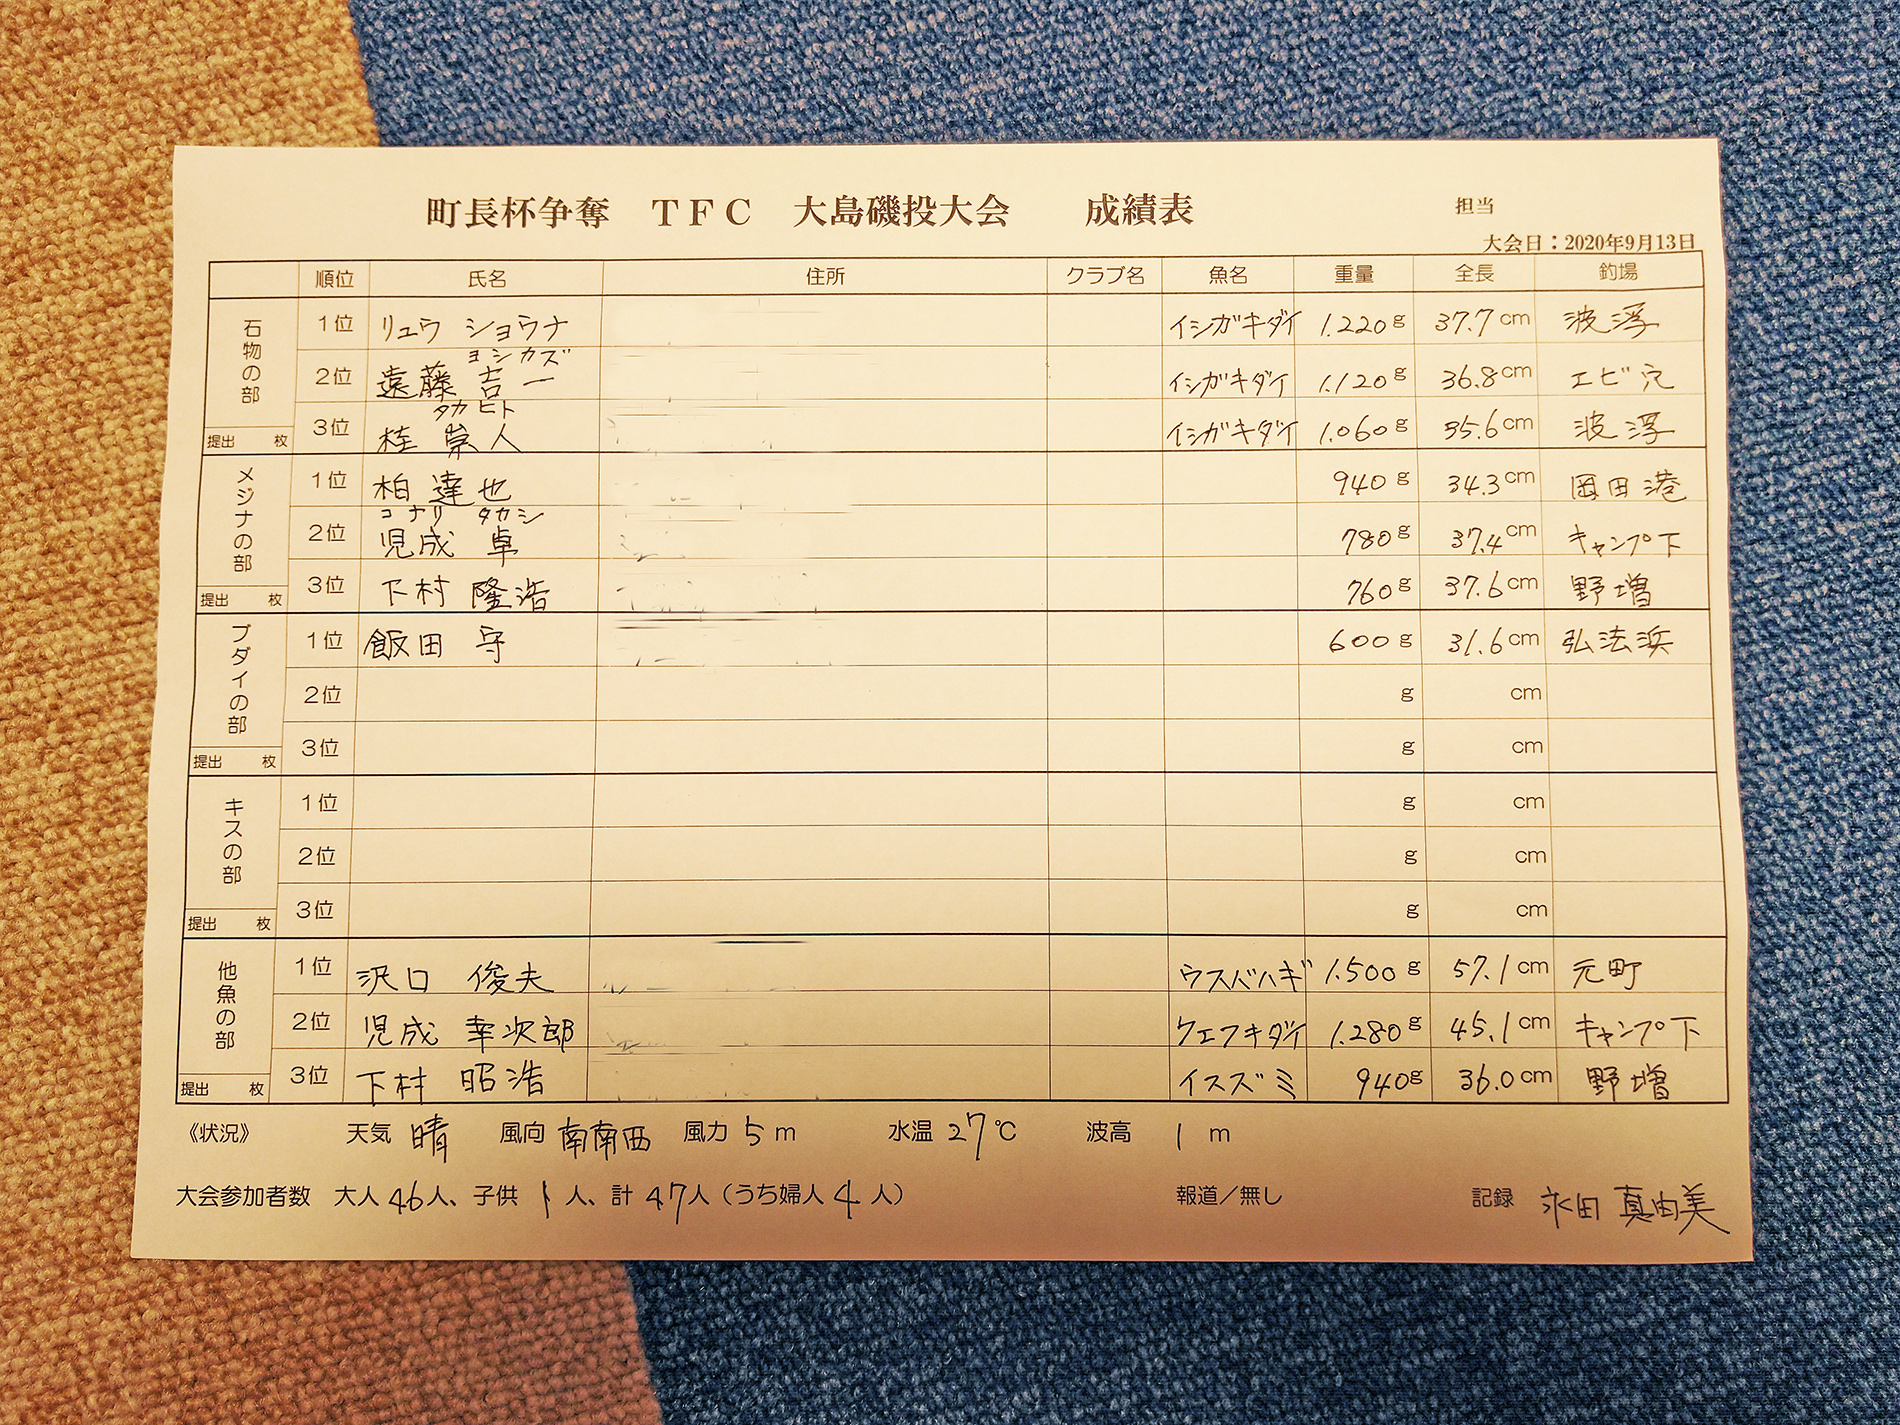 町長杯争奪 TFC 大島磯投大会 成績表 担当
大会日：2020年9月13日
順位 氏名 住所 クラブ名 魚名 重量 全長 釣場
石物の部
1位 リュウ ショウナ イシガキダイ 1.220g 37.7cm 波浮
ヨシカズ
2位 遠藤 吉一 イシガキダイ 1.120g 36.8cm エビ穴
タカヒト
3位 桂 崇人 イシガキダイ 1.060g 35.6cm 波浮
提出 枚
メジナの部
1位 柏 達也 940g 34.3cm 岡田港
コナリ タカシ
2位 児成 卓 780g 37.4cm キャンプ下
3位 下村 隆浩 760g 37.6cm 野増
提出 枚
ブダイの部
1位 飯田 守 600g 31.6cm 弘法浜
2位 g cm
3位 g cm
提出 枚
キスの部
1位 g cm
2位 g cm
3位 g cm
提出 枚
他魚の部
1位 沢口 俊夫 ウスバハギ 1.500g 57.1cm 元町
2位 児成 幸次郎 クエフキダイ 1.280g 45.1cm キャンプ下
3位 下村 昭浩 イスズミ 940g 36.0cm 野増
提出 枚
《状況》 天気 晴 風向 南南西 風力 5m 水温 27℃ 波高 1m
大会参加者数 大人46人、子供1人、計47人（うち婦人4人） 報道／無し 記録 永田 真由美